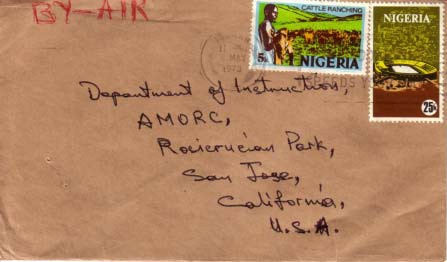 BY-AIR
CATTLE RANCHING
5k NIGERIA
NIGERIA
25k
MAY
Department of Instruction,
AMORC,
Rosicrucian Park,
San Jose,
California,
U.S.A.